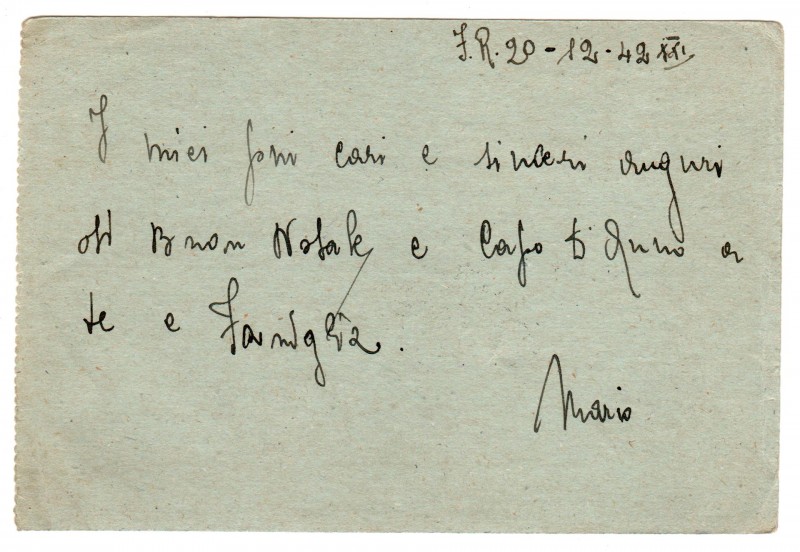 F.R. 20-12-42 XXI
I miei più cari e sinceri auguri
di Buon Natale e Capo D'Anno a
te e Famiglia.
Mario